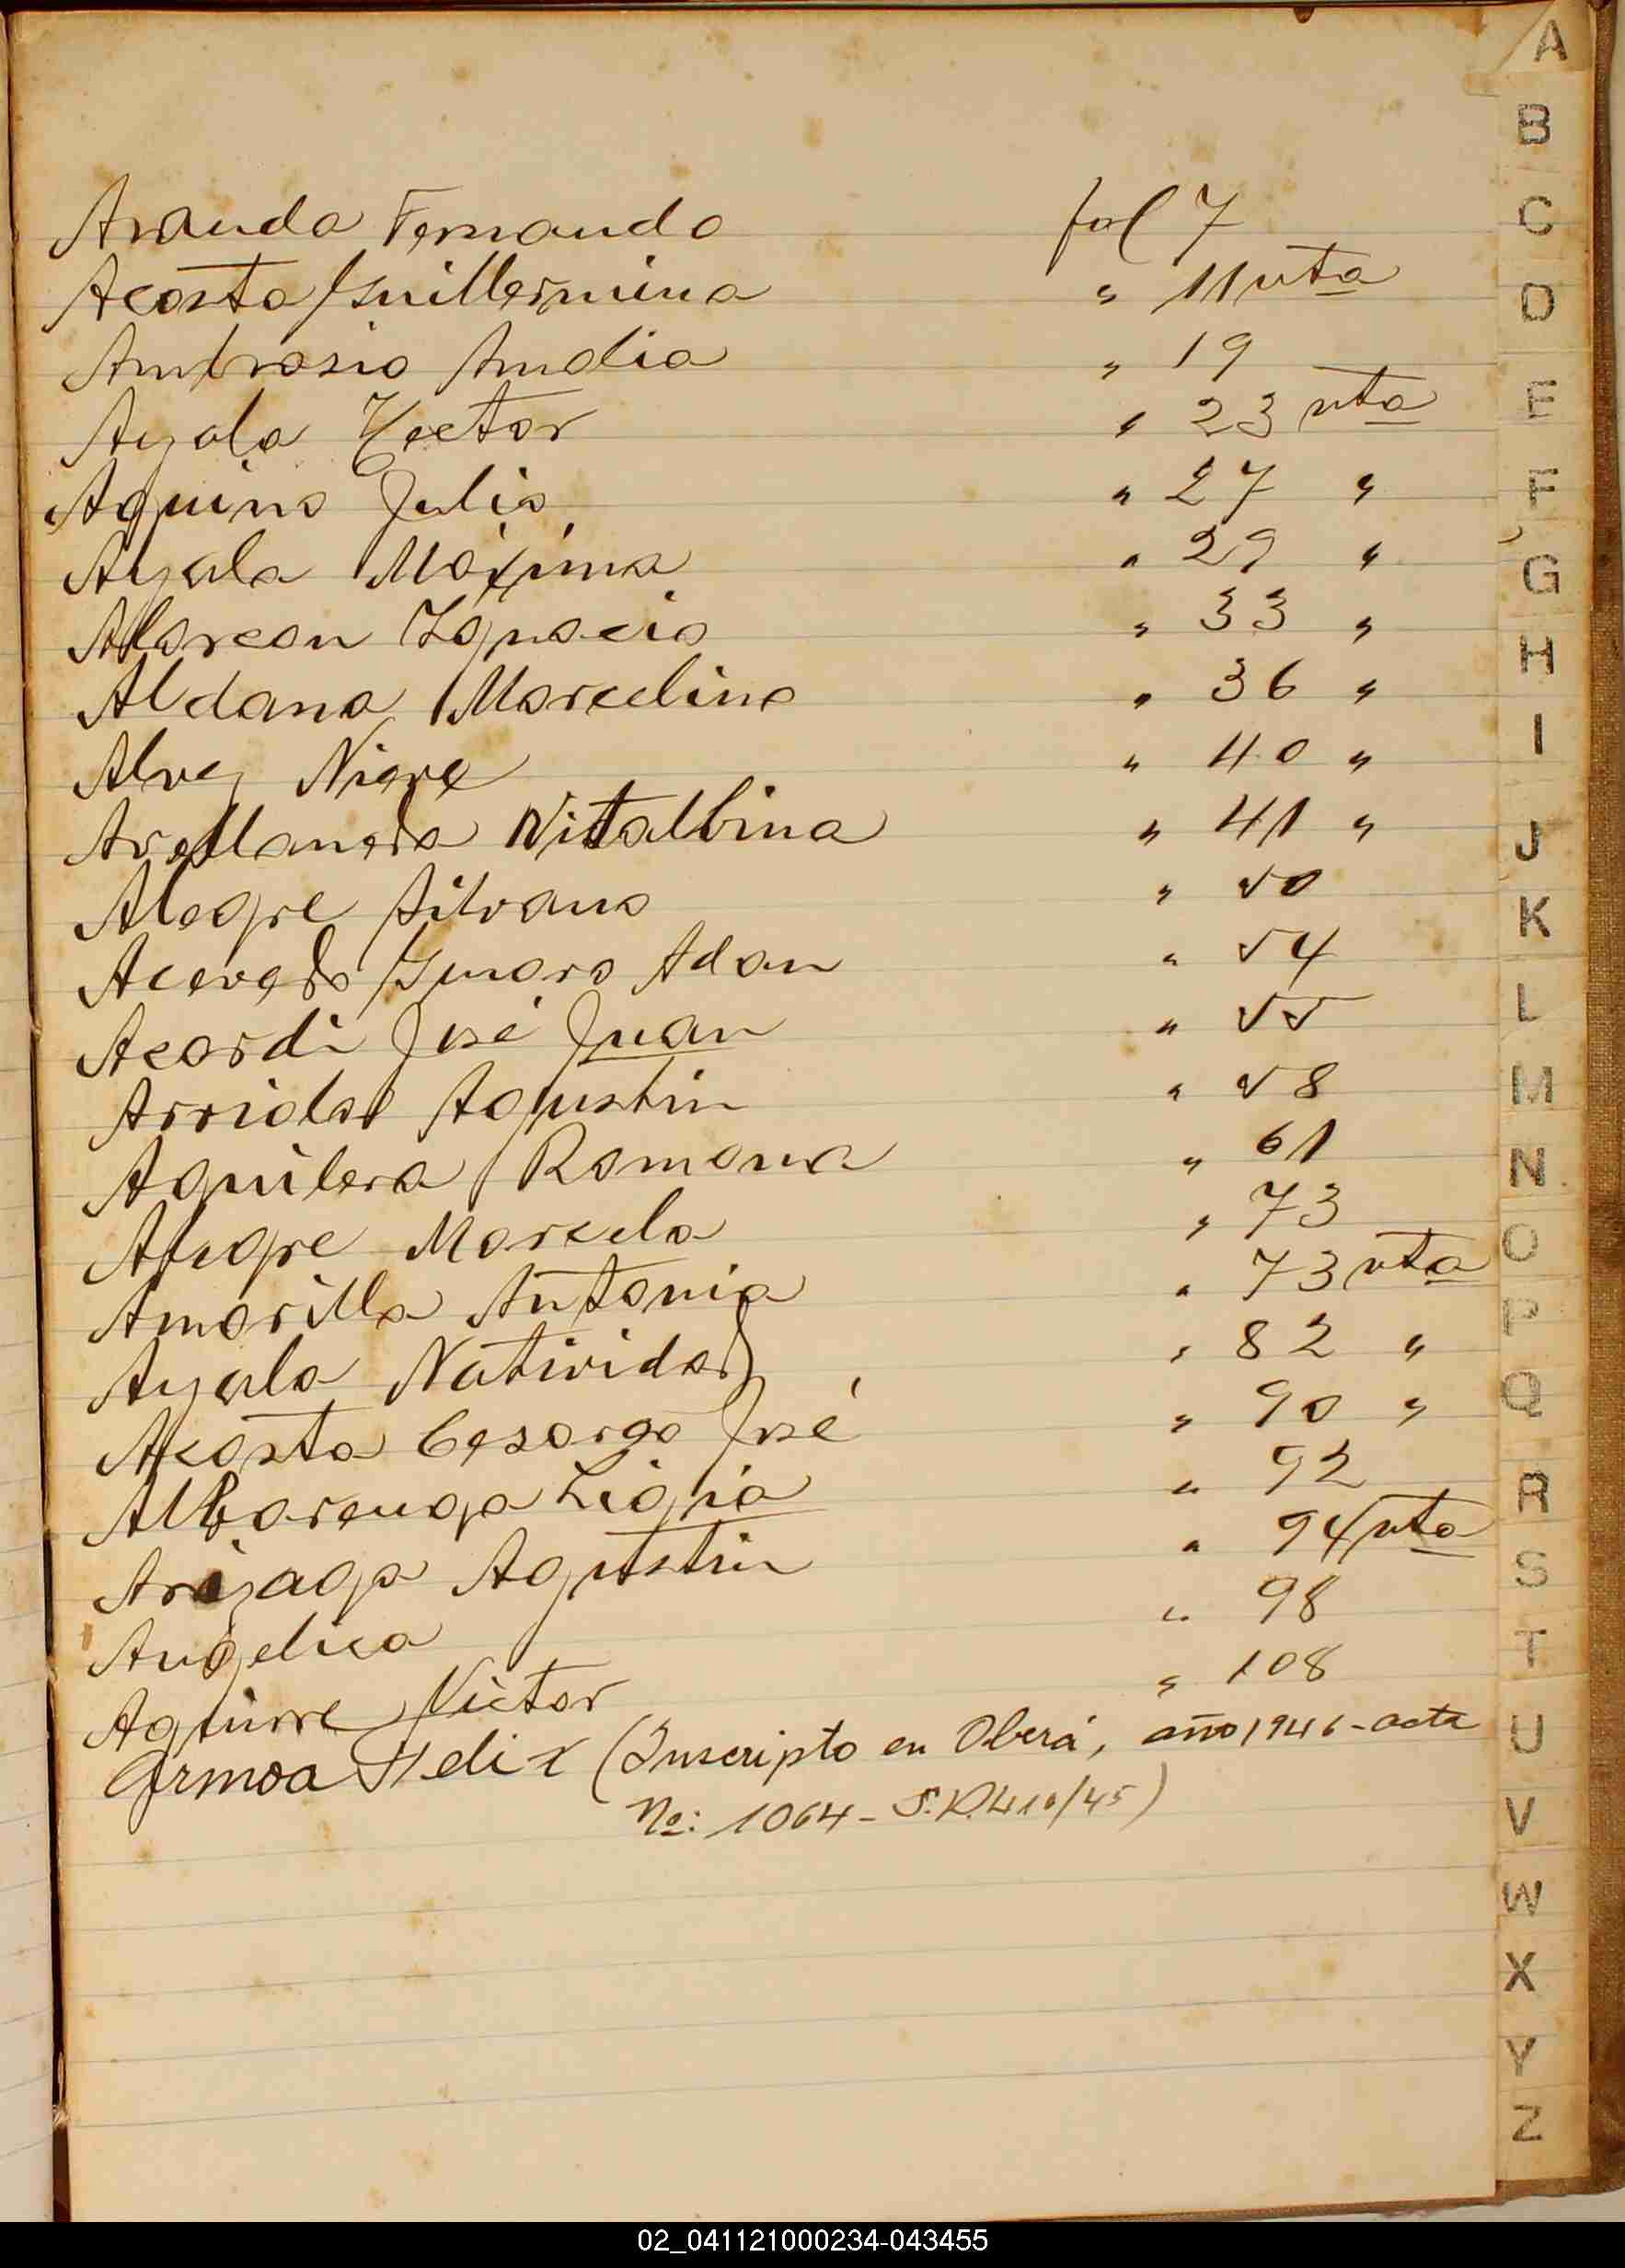 Aranda Fernando fol 7
Acosta Guillermina " 11 vta
Ambrosio Amalia " 19
Ayala Hector " 23 vta
Aquino Julio " 27 "
Ayala Máxima " 29 "
Alarcon Ignacio " 33 "
Aldana Marcelino " 36 "
Alvez Nieve " 40 "
Arellaneda Vitalbina " 41 "
Alegre Silvano " 50
Acevedo Genaro Adan " 54
Acardi José Juan " 55
Arriola Agustin " 58
Aguilera Ramona " 61
Alegre Marcela " 73
Amarilla Antonia " 73 vta
Ayala Natividad " 82 "
Acosta Cesareo José " 90 "
Albarenga Ligia " 92
Arizaga Agustin " 94 vta
Angelica " 98
Aguirre Victor " 108
Armoa Felix (Inscripto en Oberá, año 1946 - acta
No: 1064 - S.D. 410/45)
A
B
C
D
E
F
G
H
I
J
K
L
M
N
O
P
Q
R
S
T
U
V
W
X
Y
Z
02_041121000234-043455